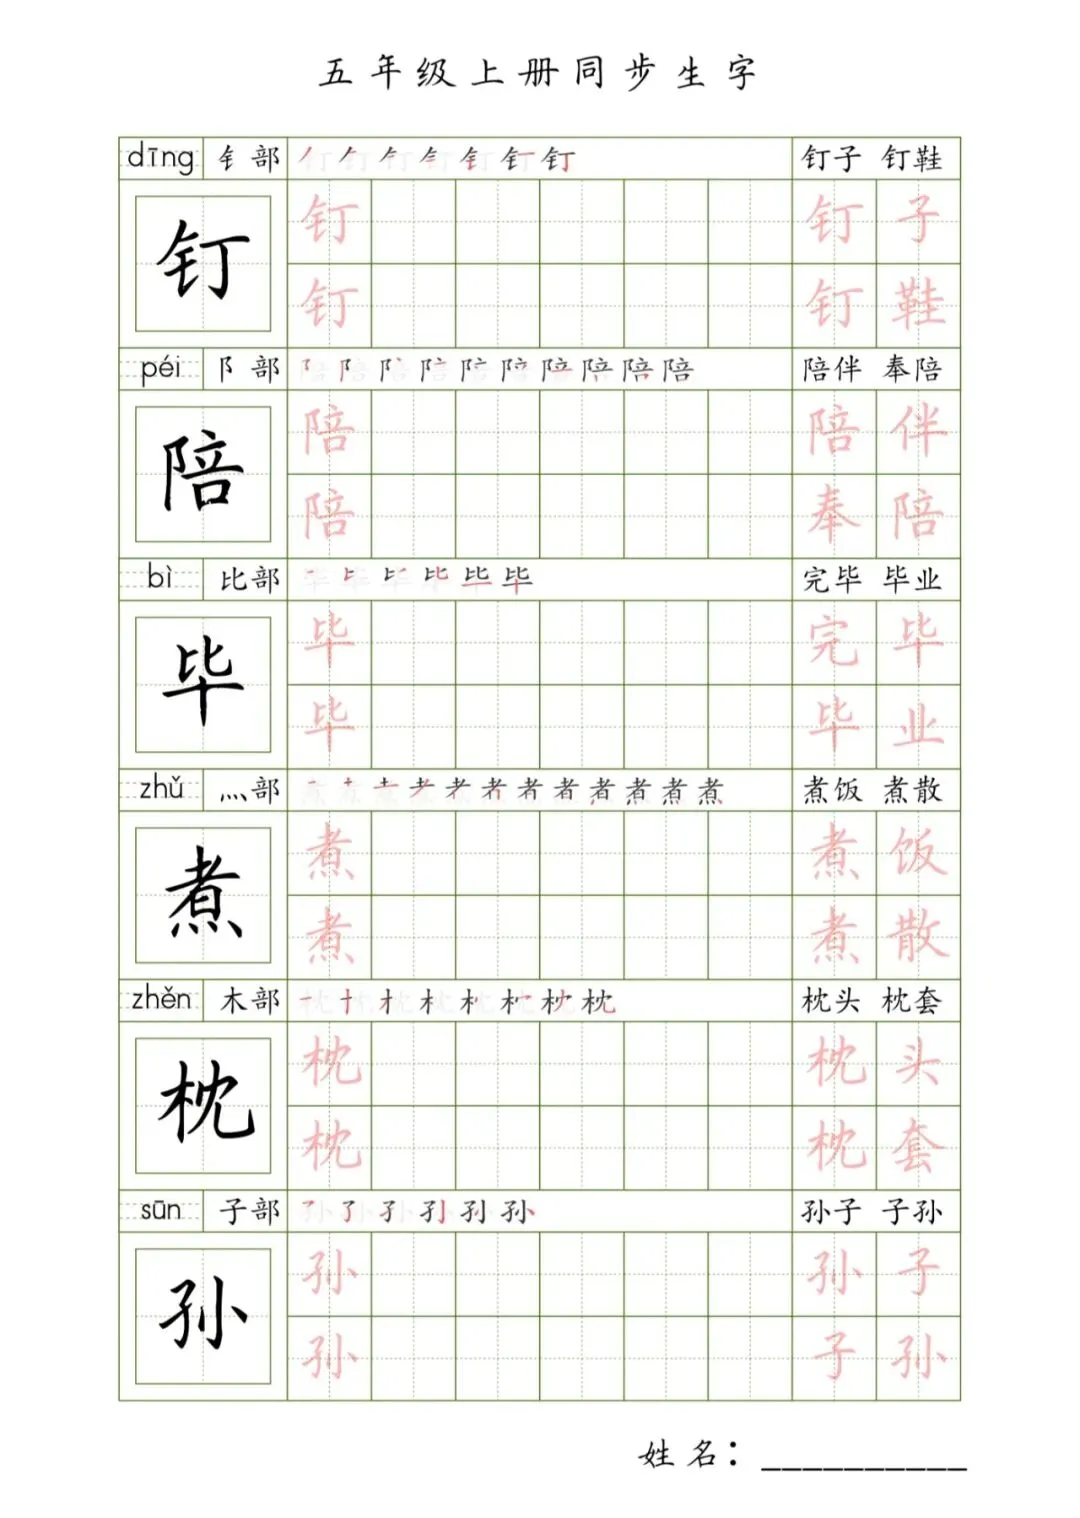 五年级上册同步生字
dīng 钅部 钉 钉子 钉鞋
钉 钉 钉子
钉 钉鞋
péi 阝部 陪 陪伴 奉陪
陪 陪 陪伴
陪 奉陪
bì 比部 毕 完毕 毕业
毕 毕 完毕
毕 毕业
zhǔ 灬部 煮 煮饭 煮散
煮 煮 煮饭
煮 煮散
zhěn 木部 枕 枕头 枕套
枕 枕 枕头
枕 枕套
sūn 子部 孙 孙子 子孙
孙 孙 孙子
孙 子孙
姓名：__________